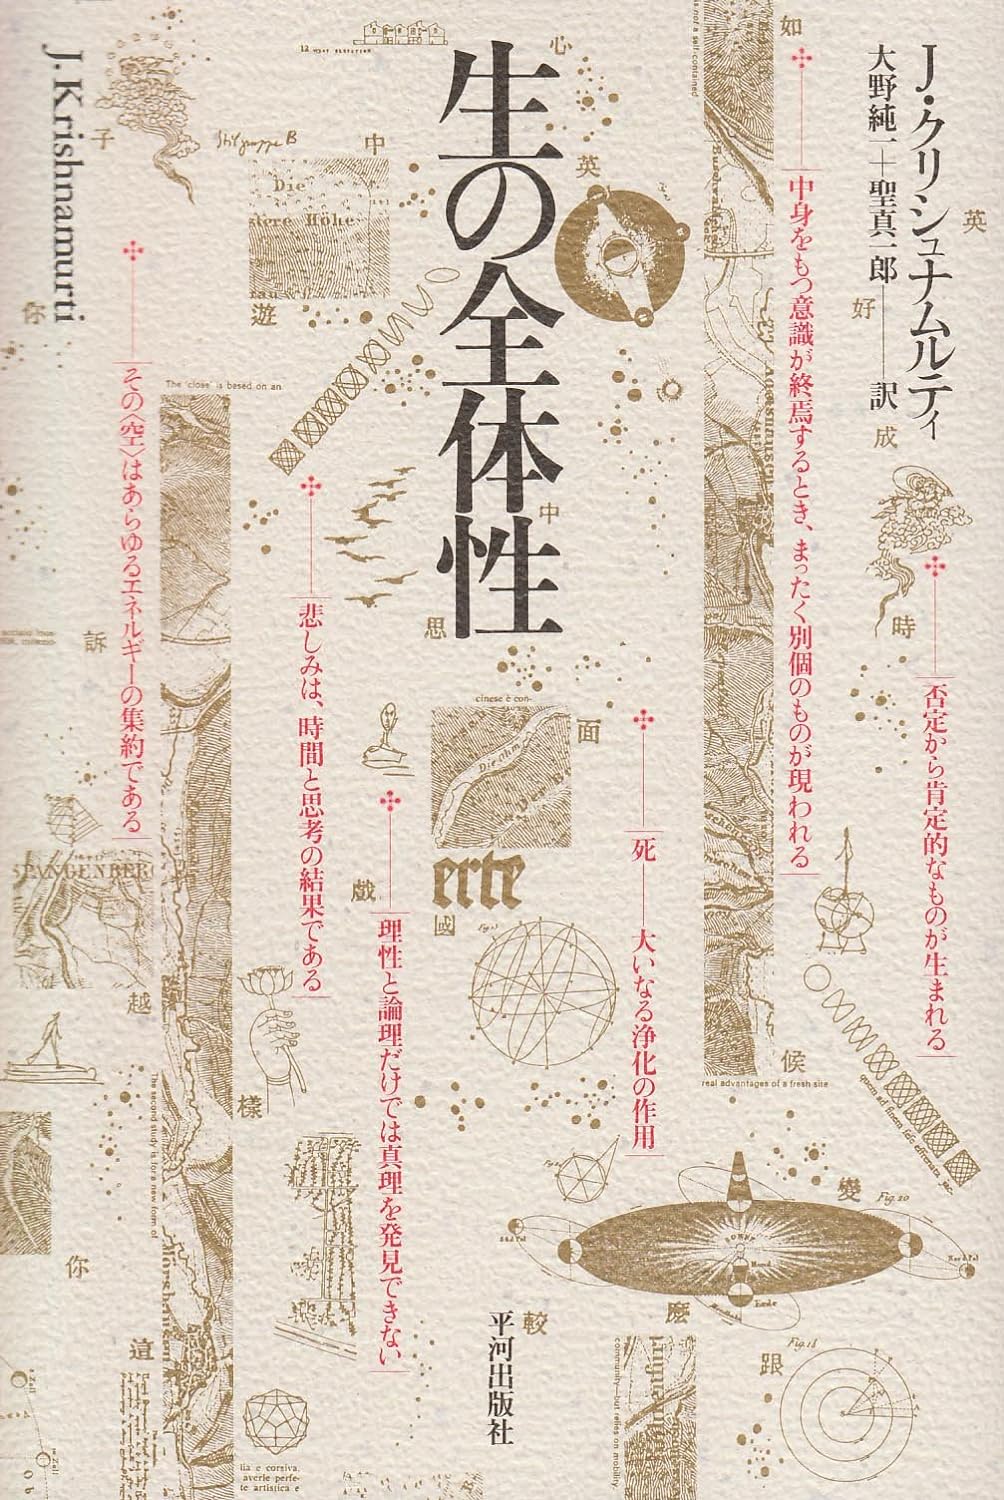 J・クリシュナムルティ
大野純一+聖真一郎——訳
生の全体性
J. Krishnamurti
否定から肯定的なものが生まれる
中身をもつ意識が終焉するとき、まったく別個のものが現われる
死——大いなる浄化の作用
理性と論理だけでは真理を発見できない
悲しみは、時間と思考の結果である
その〈空〉はあらゆるエネルギーの集約である
平河出版社
如
心
英
中
子
英
好
你
遊
成
中
思
時
訴
面
戯
國
越
候
樣
變
你
較
麼
這
跟
Stilgruppe B
Die
stere Höhe
The 'close' is based on an
cinese è con-
Die ohm
erte
SPANGENBERG
real advantages of a fresh site
The second study is for a new form of
Fig. 20
Fig. 18
community—but relies on mobility
lia e corsiva.
averle perfe-
te artistica e